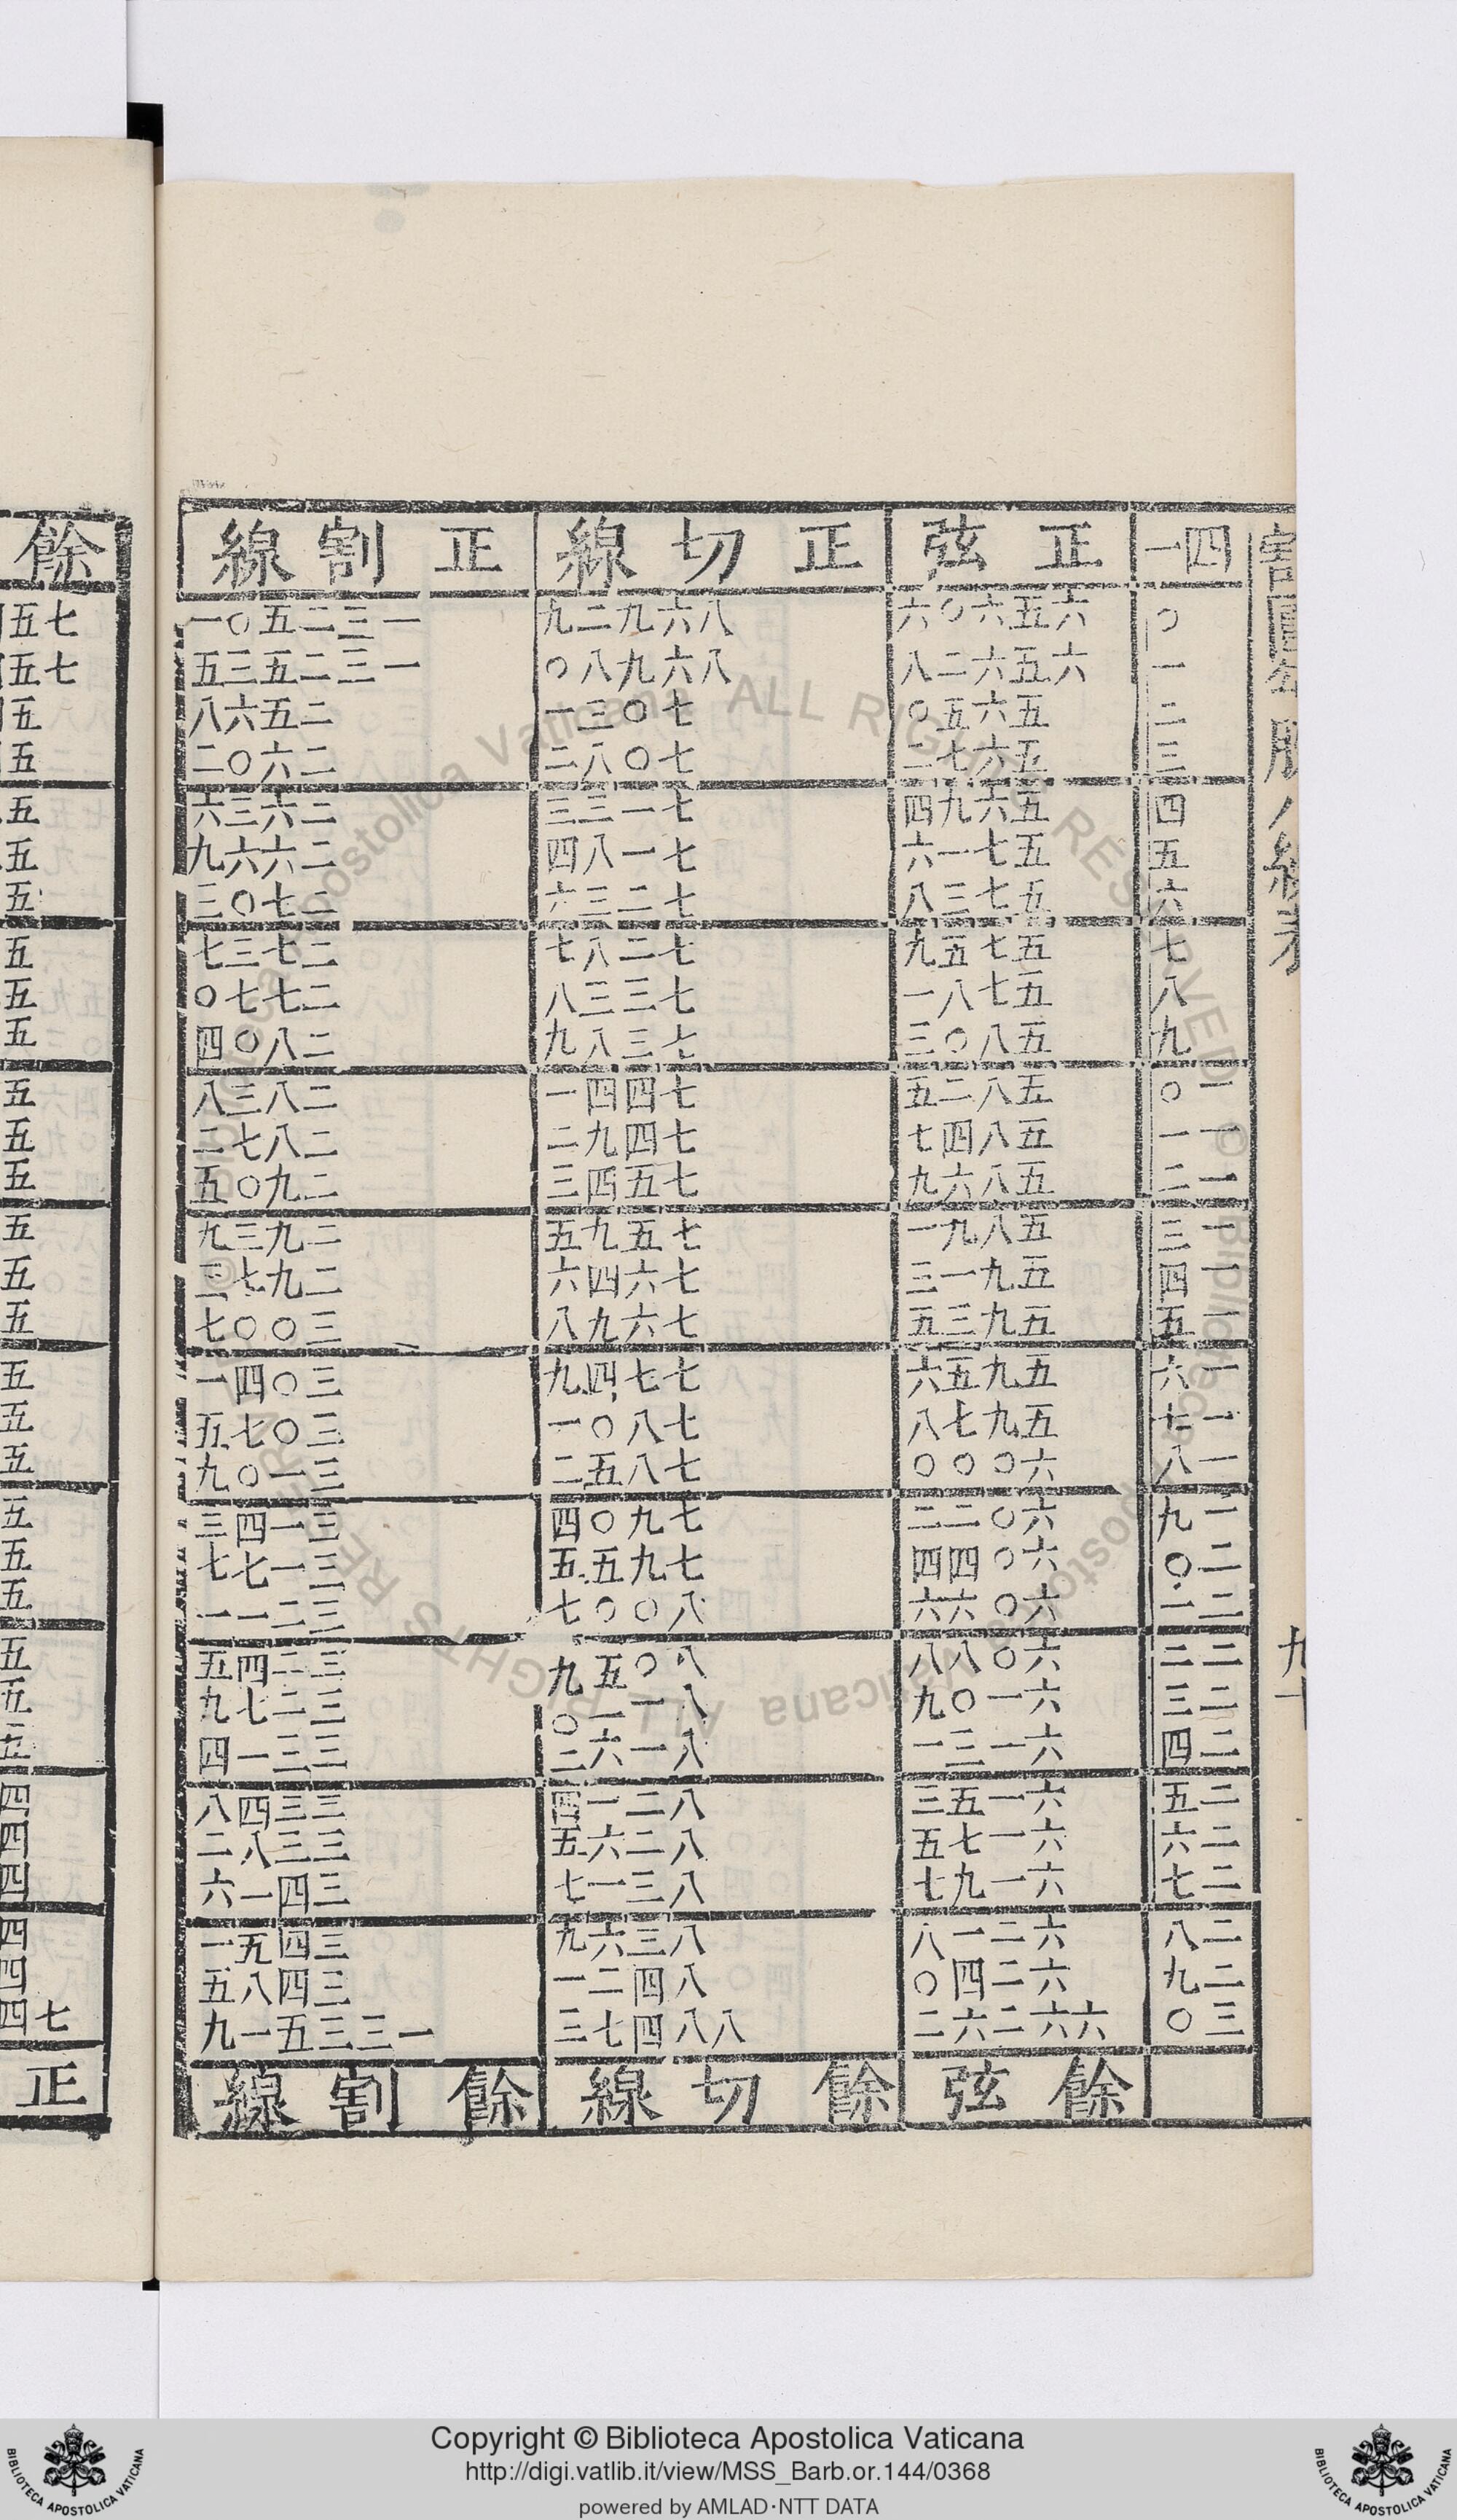 割圓勾股八線表
九十
四一 正弦 正切線 正割線
〇 六五六〇六 八六九二九 一三二五〇一
一 六五六二八 八六九八〇 一三二五三五
二 五六五〇 七〇三一 二五六八
三 五六七二 七〇八二 二六〇二
四 五六九四 七一三三 二六三六
五 五七一六 七一八四 二六六九
六 五七三八 七二三六 二七〇三
七 五七五九 七二八七 二七三七
八 五七八一 七三三八 二七七〇
九 五八〇三 七三八九 二八〇四
一〇 五八二五 七四四一 二八三八
一一 五八四七 七四九二 二八七二
一二 五八六九 七五四三 二九〇五
一三 五八九一 七五九五 二九三九
一四 五九一三 七六四六 二九七三
一五 五九三五 七六九八 三〇〇七
一六 五九五六 七七四九 三〇四一
一七 五九七八 七八〇一 三〇七五
一八 六〇〇〇 七八五二 三一〇九
一九 六〇二二 七九〇四 三一四三
二〇 六〇四四 七九五五 三一七七
二一 六〇六六 八〇〇七 三二一一
二二 六〇八八 八〇五九 三二四五
二三 六一〇九 八一一〇 三二七九
二四 六一三一 八一六二 三三一四
二五 六一五三 八二一四 三三四八
二六 六一七五 八二六五 三三八二
二七 六一九七 八三一七 三四一六
二八 六二一八 八三六九 三四五一
二九 六二四〇 八四二一 三四八五
三〇 六六二六二 八八四七三 一三三五一九
餘弦 餘切線 餘割線
餘
七五
七五
五
五
五
五
五
五
五
五
五
五
五
五
五
五
五
五
五
五
五
五
五
五
五
四
四
四
四
四
七四
正
Copyright © Biblioteca Apostolica Vaticana
http://digi.vatlib.it/view/MSS_Barb.or.144/0368
powered by AMLAD·NTT DATA
BIBLIOTECA APOSTOLICA VATICANA
BIBLIOTECA APOSTOLICA VATICANA
© Biblioteca Apostolica Vaticana ALL RIGHTS RESERVED
© Biblioteca Apostolica Vaticana ALL RIGHTS RESERVED